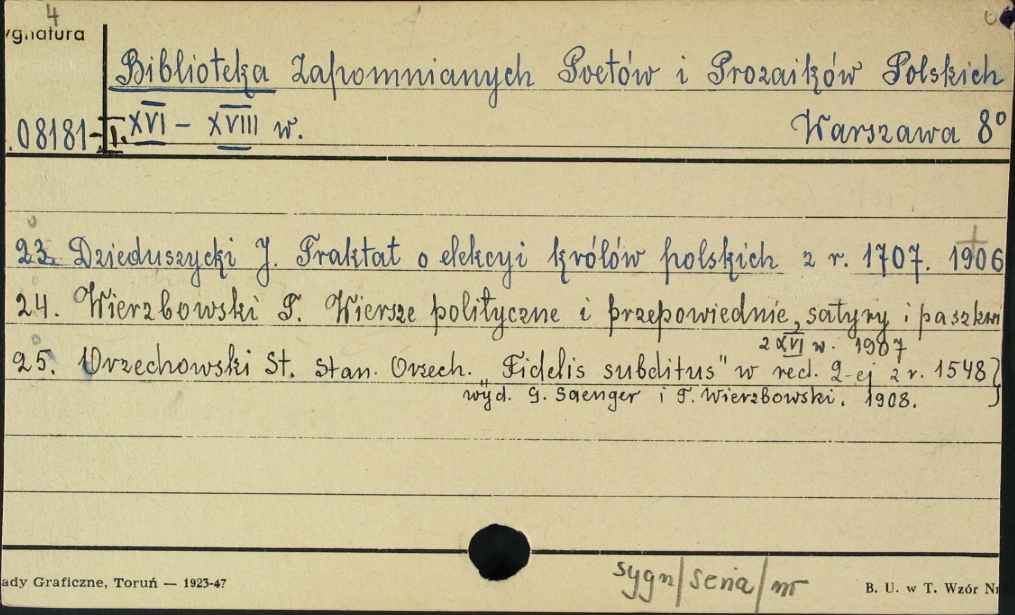 4
ygnatura
Biblioteka Zapomnianych Poetów i Prozaików Polskich
08181-I. XVI – XVIII w. Warszawa 8°
23. Dzieduszycki J. Traktat o elekcyi królów polskich z r. 1707. 1906
24. Wierzbowski T. Wiersze polityczne i przepowiednie, satyry i paszkwi
z XVI w. 1907
25. Orzechowski St. Stan. Orzech. "Fidelis subditus" w red. 2-ej z r. 1548
wyd. G. Saenger i T. Wierzbowski. 1908.
ady Graficzne, Toruń — 1923-47
sygn/seria/nr
B. U. w T. Wzór Nr